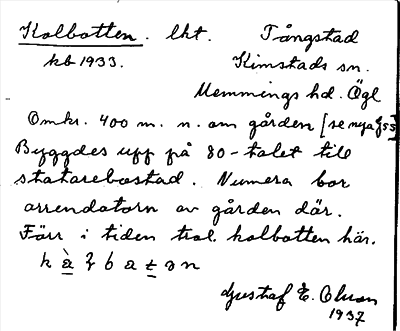 Kolbotten. lht. Tångstad
kb 1933. Kimstads sn.
Memmings hd. Ögl
Omkr. 400 m. n. om gården [se nya
Byggdes upp på 80-talet till
statarebostad. Numera bor
arrendatorn av gården där.
Förr i tiden trol. kolbotten här.
Gustaf E. Olsson
1937